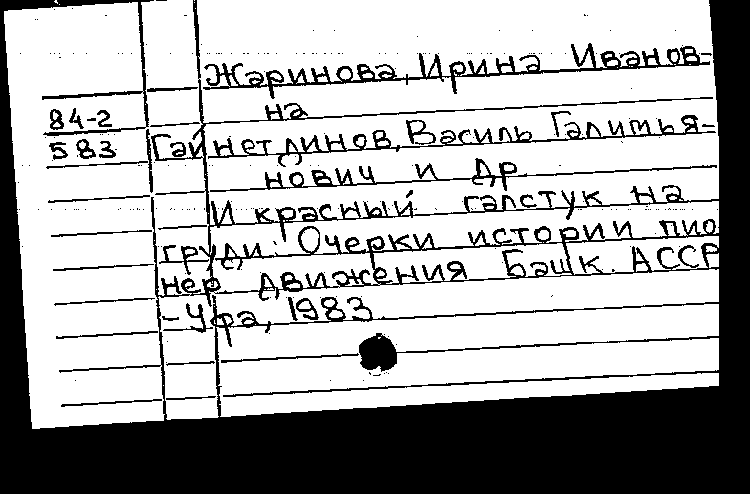 Жаринова, Ирина Иванов-
на
84-2
583
Гайнетдинов, Василь Галитья-
нович и др.
И красный галстук на
груди: Очерки истории пио
нер движения Башк. АССР
-Уфа, 1983.